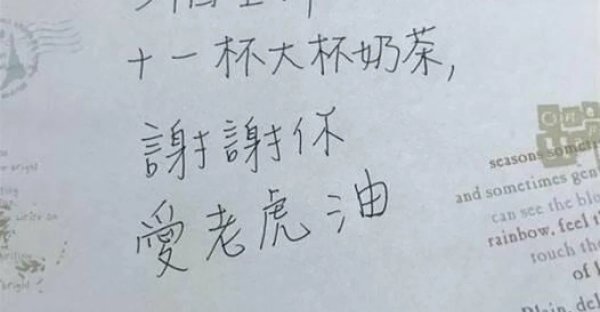 十一杯大杯奶茶,
謝謝你
愛老虎油
seasons
and sometimes gen
can see the blu
rainbow. feel t
touch th
of l